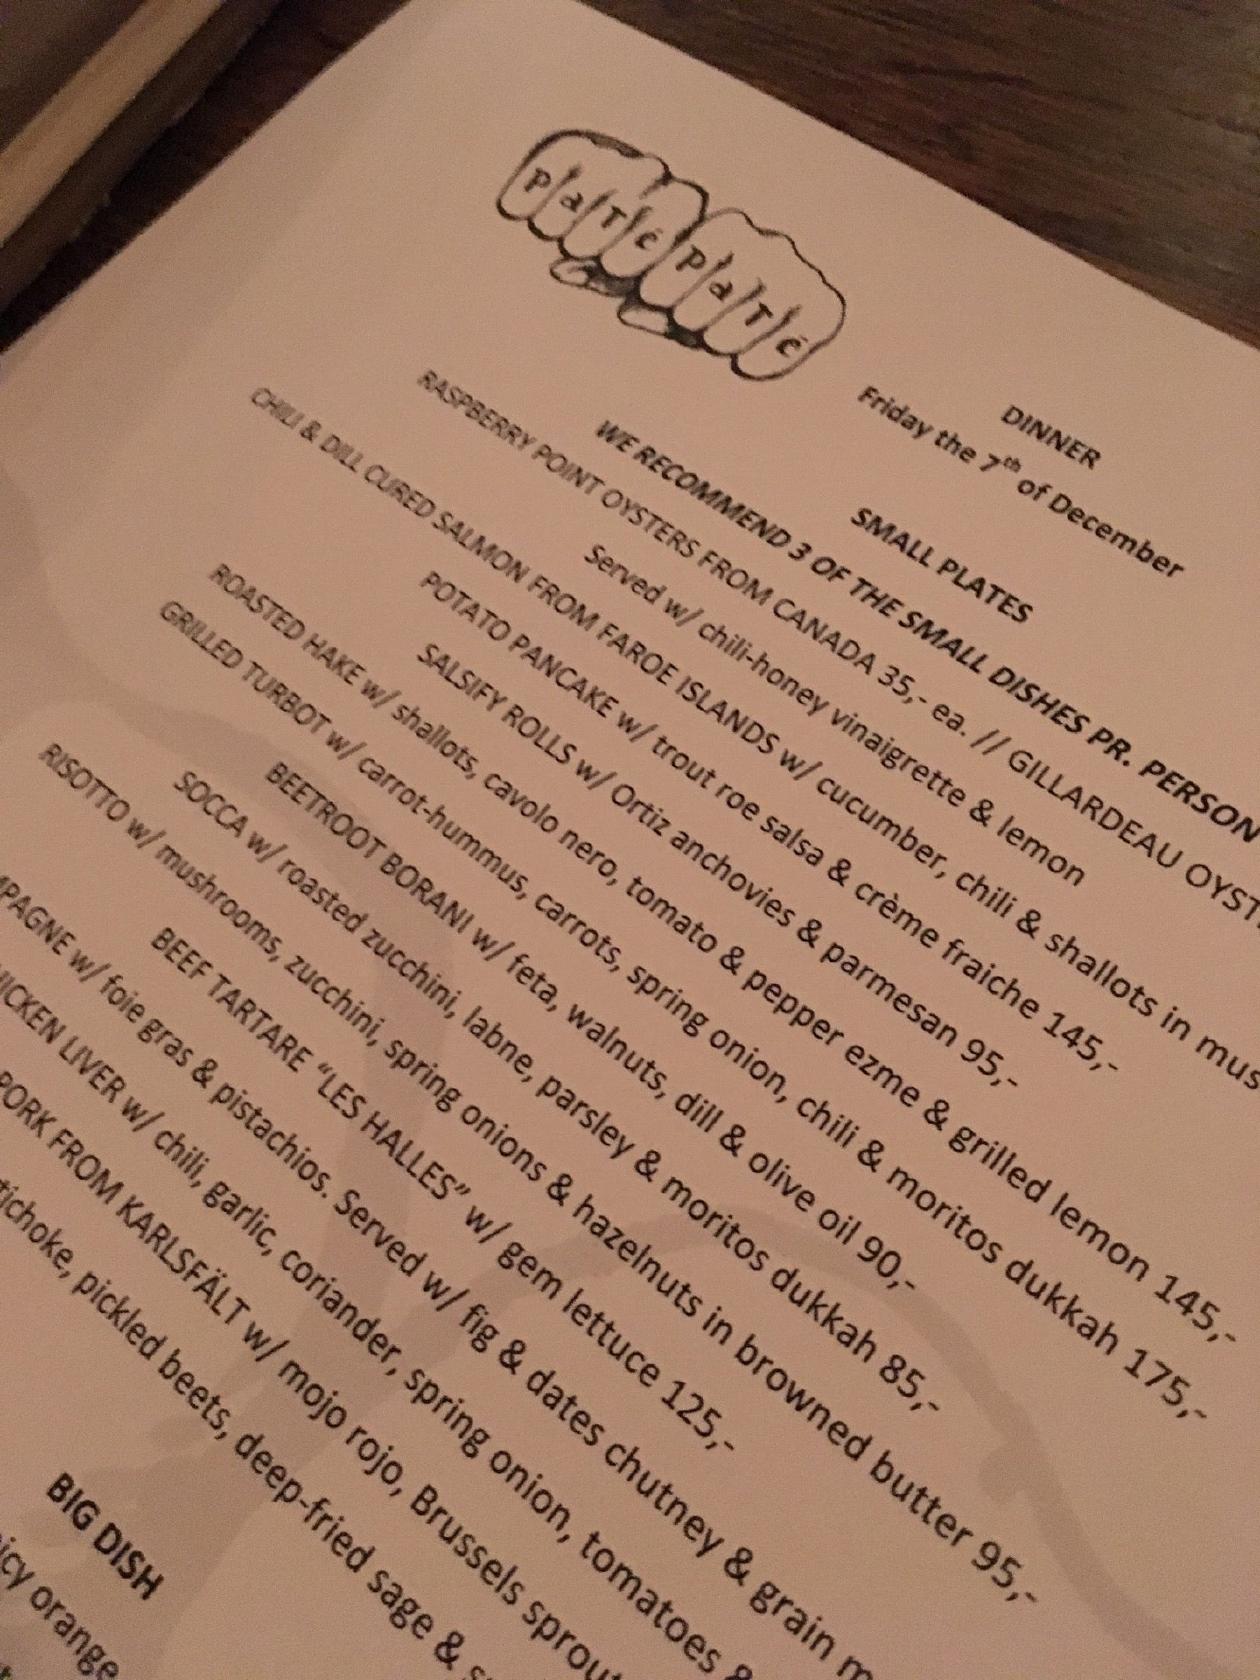 Paté Paté
DINNER
Friday the 7th of December
SMALL PLATES
WE RECOMMEND 3 OF THE SMALL DISHES PR. PERSON
RASPBERRY POINT OYSTERS FROM CANADA 35,- ea. // GILLARDEAU
Served w/ chili-honey vinaigrette & lemon
CHILI & DILL CURED SALMON FROM FAROE ISLANDS w/ cucumber, chili & shallots in
POTATO PANCAKE w/ trout roe salsa & crème fraiche 145,-
SALSIFY ROLLS w/ Ortiz anchovies & parmesan 95,-
ROASTED HAKE w/ shallots, cavolo nero, tomato & pepper ezme & grilled lemon 145,-
GRILLED TURBOT w/ carrot-hummus, carrots, spring onion, chili & moritos dukkah 175,-
BEETROOT BORANI w/ feta, walnuts, dill & olive oil 90,-
SOCCA w/ roasted zucchini, labne, parsley & moritos dukkah 85,-
RISOTTO w/ mushrooms, zucchini, spring onions & hazelnuts in browned butter 95,-
BEEF TARTARE “LES HALLES” w/ gem lettuce 125,-
w/ foie gras & pistachios. Served w/ fig & dates chutney & grain
LIVER w/ chili, garlic, coriander, spring onion, tomatoes &
PORK FROM KARLSFÄLT w/ mojo rojo, Brussels
pickled beets, deep-fried sage &
BIG DISH
orange